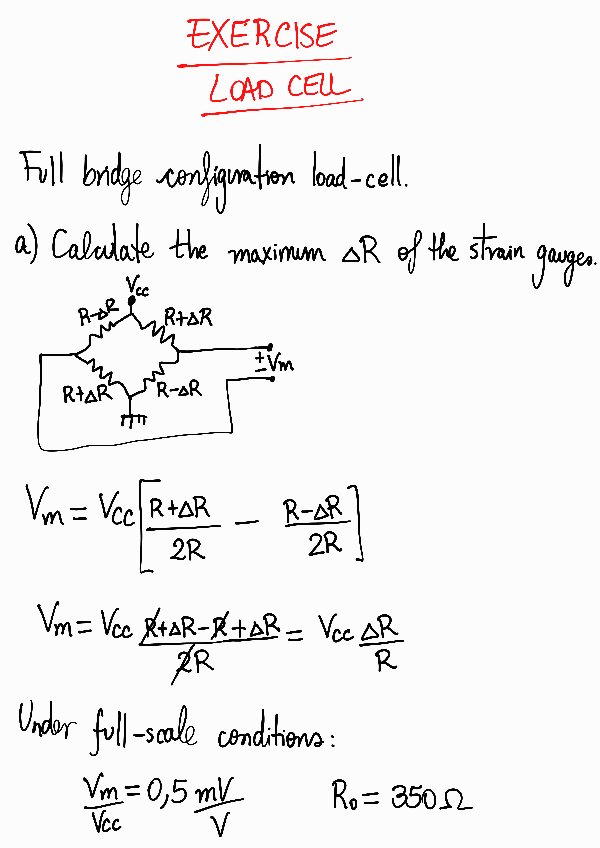 EXERCISE
LOAD CELL
Full bridge configuration load-cell.
a) Calculate the maximum ΔR of the strain gauges.
Vcc
R-ΔR R+ΔR
+ - Vm
R+ΔR R-ΔR
Vm = Vcc [ (R+ΔR)/(2R) - (R-ΔR)/(2R) ]
Vm = Vcc (R+ΔR-R+ΔR)/(2R) = Vcc ΔR/R
Under full-scale conditions:
Vm/Vcc = 0,5 mV/V R₀ = 350Ω